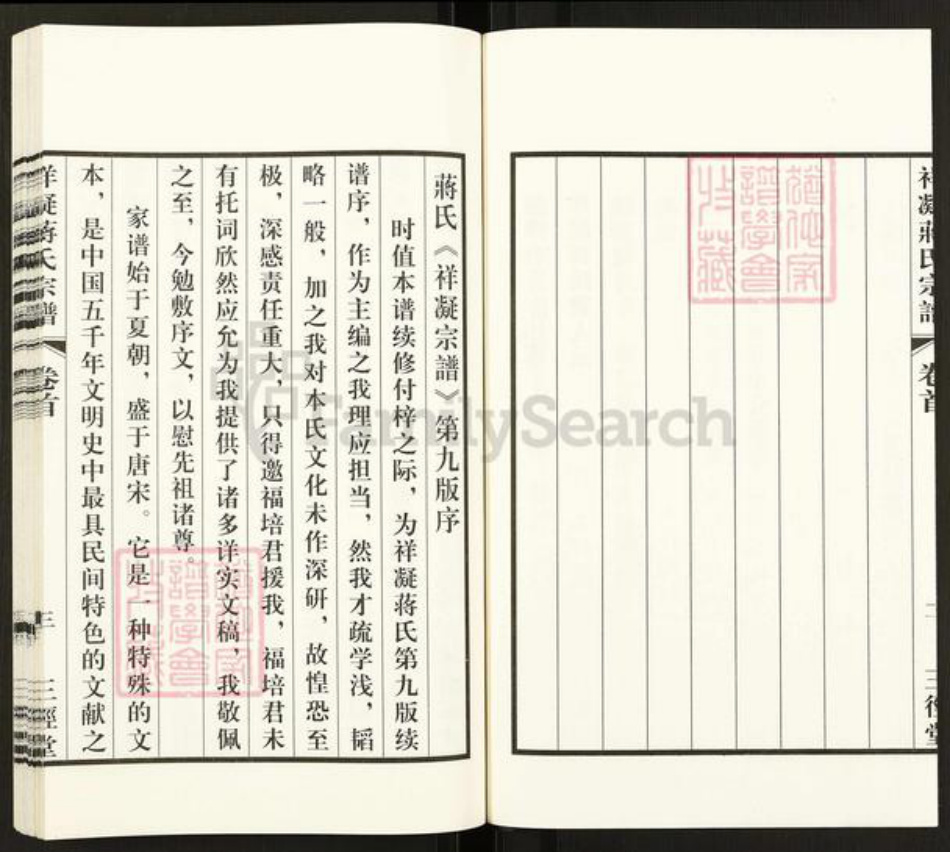 祥凝蔣氏宗譜 卷首 二 三徑堂
蔣氏《祥凝宗譜》第九版序
时值本谱续修付梓之际，为祥凝蒋氏第九版续
谱序，作为主编之我理应担当，然我才疏学浅，韬
略一般，加之我对本氏文化未作深研，故惶恐至
极，深感责任重大，只得邀福培君援我，福培君未
有托词欣然应允为我提供了诸多详实文稿，我敬佩
之至，今勉敷序文，以慰先祖诸尊。
家谱始于夏朝，盛于唐宋。它是一种特殊的文
本，是中国五千年文明史中最具民间特色的文献之
祥凝蔣氏宗譜 卷首 三 三徑堂
譜學會
收藏
譜學會
收藏
FamilySearch